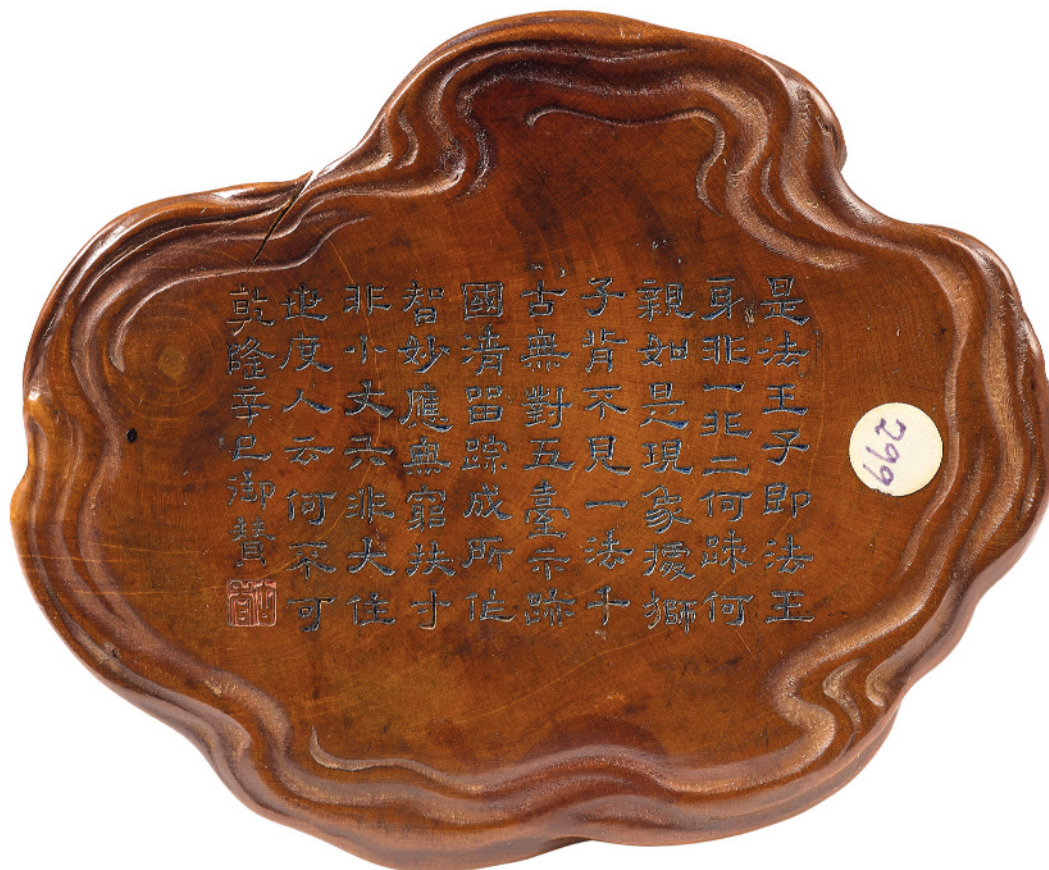 是法王子即法王
身非一非二何疎何
親如是現象據獅
子背不見一法千
古無對五臺示跡
國清留踪成所作
智妙應無窮扶寸
非小丈六非大住
世度人云何不可
乾隆辛巳御贊
古香
299